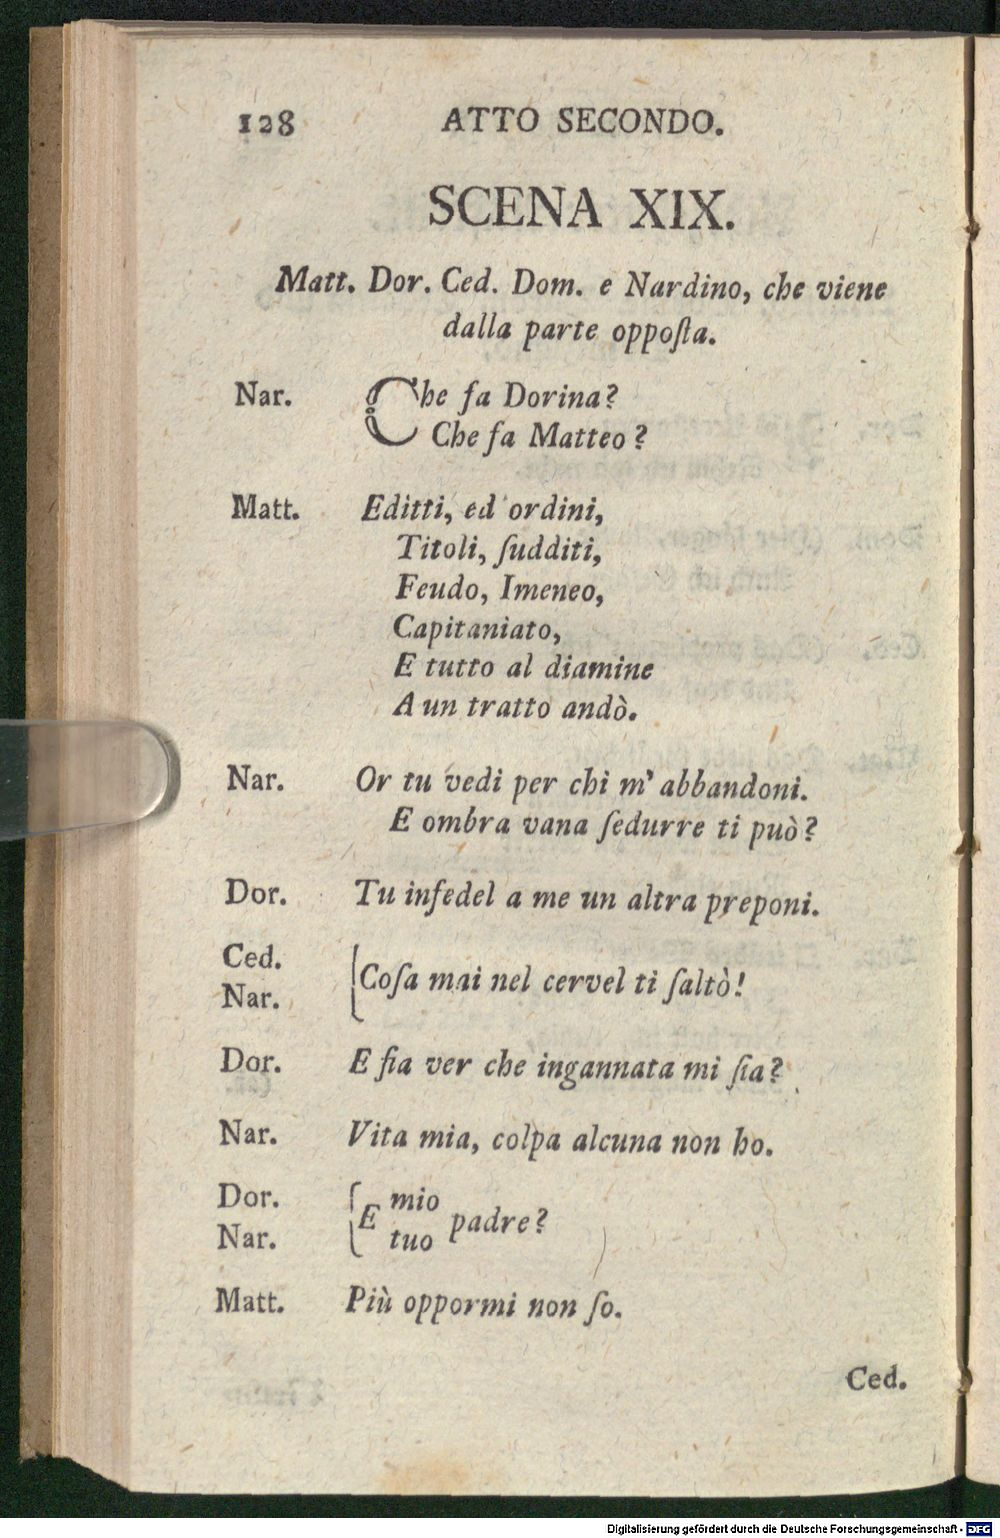 128 ATTO SECONDO.
SCENA XIX.
Matt. Dor. Ced. Dom. e Nardino, che viene
dalla parte oppoſta.
Nar. Che fa Dorina?
Che fa Matteo?
Matt. Editti, ed ordini,
Titoli, ſudditi,
Feudo, Imeneo,
Capitaniato,
E tutto al diamine
A un tratto andò.
Nar. Or tu vedi per chi m' abbandoni.
E ombra vana ſedurre ti può?
Dor. Tu infedel a me un altra preponi.
Ced.
Nar. Coſa mai nel cervel ti ſaltò!
Dor. E fia ver che ingannata mi ſia?
Nar. Vita mia, colpa alcuna non ho.
Dor. E mio padre?
Nar. tuo
Matt. Più oppormi non ſo.
Ced.
Digitalisierung gefördert durch die Deutsche Forschungsgemeinschaft - DFG